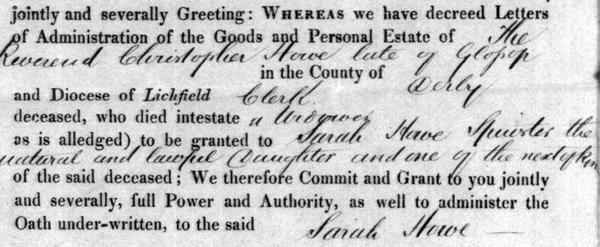 jointly and severally Greeting: WHEREAS we have decreed Letters
of Administration of the Goods and Personal Estate of The
Reverend Christopher Howe late of Glossop
in the County of Derby
and Diocese of Lichfield Clerk
deceased, who died intestate a Widower
as is alledged) to be granted to Sarah Howe Spinster the
natural and lawful Daughter and one of the next of kin
of the said deceased; We therefore Commit and Grant to you jointly
and severally, full Power and Authority, as well to administer the
Oath under-written, to the said Sarah Howe